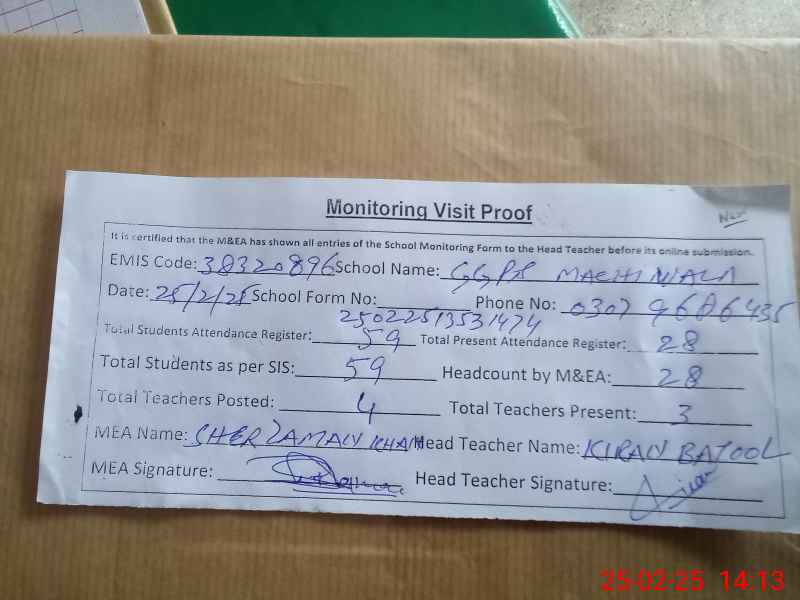 Monitoring Visit Proof
New
It is certified that the M&EA has shown all entries of the School Monitoring Form to the Head Teacher before its online submission.
EMIS Code: 38320896 School Name: GGPS MACHINIALA
Date: 25/2/25 School Form No: Phone No: 0307 9686435
25022513531474
Total Students Attendance Register: 59 Total Present Attendance Register: 28
Total Students as per SIS: 59 Headcount by M&EA: 28
Total Teachers Posted: 4 Total Teachers Present: 3
MEA Name: SHER ZAMAN KHAN Head Teacher Name: KIRAN BATOOL
MEA Signature: Head Teacher Signature: Kiran
25-02-25 14:13